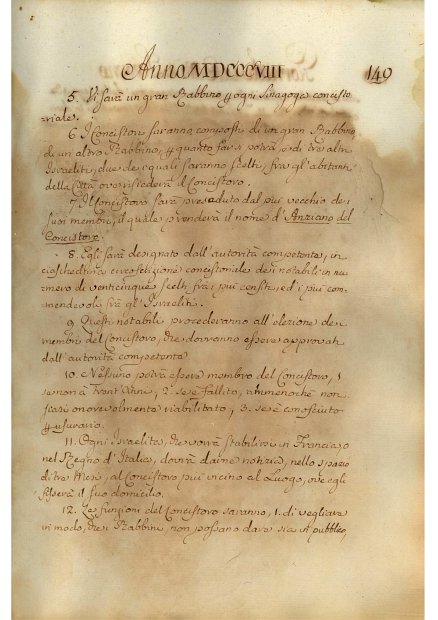 Anno MDCCCVIII 149
5. Vi sarà un gran Rabbino p ogni Sinagoga concisto
riale.
6. I Concistori saranno composti di un gran Rabbino,
di un altro Rabbino, p quanto far si potrà e di tre altri
Israeliti, due de' quali saranno scelti fra gl'abitanti
della Città ove risiederà il Concistoro.
7. Il Concistoro sarà presieduto dal più vecchio de
suoi membri, il quale prenderà il nome d'Anziano del
Concistoro.
8. Egli sarà designato dall'autorità competente, in
ciascheduna circoscrizione concistoriale dei notabili in nu
mero di venticinque scelti frà i più censiti, ed i più com
mendevoli frà gl'Israeliti.
9. Questi notabili procederanno all'elezione dei
membri del Concistoro, che dovranno essere approvati
dall'autorità competente
10. Nessuno potrà essere membro del Concistoro, 1.
se non à Trent'Anni, 2. se è fallito, ammenochè non
siasi onorevolmente riabilitato, 3. se è conosciuto
p usurario.
11. Ogni Israelita, che vorrà stabilirsi in Francia, o
nel Regno d'Italia, dovrà darne notizia, nello spazio
di tre Mesi, al Concistoro più vicino al Luogo, ove egli
fisserà il suo domicilio.
12. Le funzioni del Concistoro saranno, 1. di vegliare
in modo, che i Rabbini non possano dare sia in pubblico,